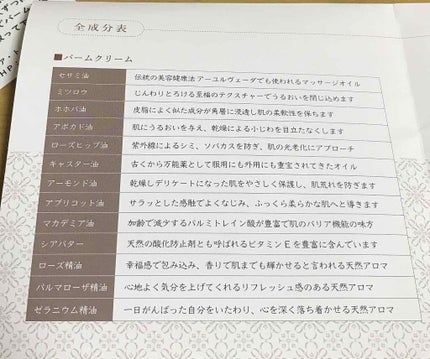 全成分表
■バームクリーム
セサミ油 伝統の美容健康法アーユルヴェーダでも使われるマッサージオイル
ミツロウ じんわりとろける至福のテクスチャーでうるおいを閉じ込めます
ホホバ油 皮脂によく似た成分が角層に浸透し肌の柔軟性を保ちます
アボカド油 肌にうるおいを与え、乾燥による小じわを目立たなくします
ローズヒップ油 紫外線によるシミ、ソバカスを防ぎ、肌の光老化にアプローチ
キャスター油 古くから万能薬として服用にも外用にも重宝されてきたオイル
アーモンド油 乾燥しデリケートになった肌をやさしく保護し、肌荒れを防ぎます
アプリコット油 サラッとした感触でよくなじみ、ふっくら柔らかな肌へと導きます
マカデミア油 加齢で減少するパルミトレイン酸が豊富で肌のバリア機能の味方
シアバター 天然の酸化防止剤とも呼ばれるビタミンEを豊富に含んでいます
ローズ精油 幸福感で包み込み、香りで肌までも輝かせると言われる天然アロマ
パルマローザ精油 心地よく気分を上げてくれるリフレッシュ感のある天然アロマ
ゼラニウム精油 一日がんばった自分をいたわり、心を深く落ち着かせる天然アロマ